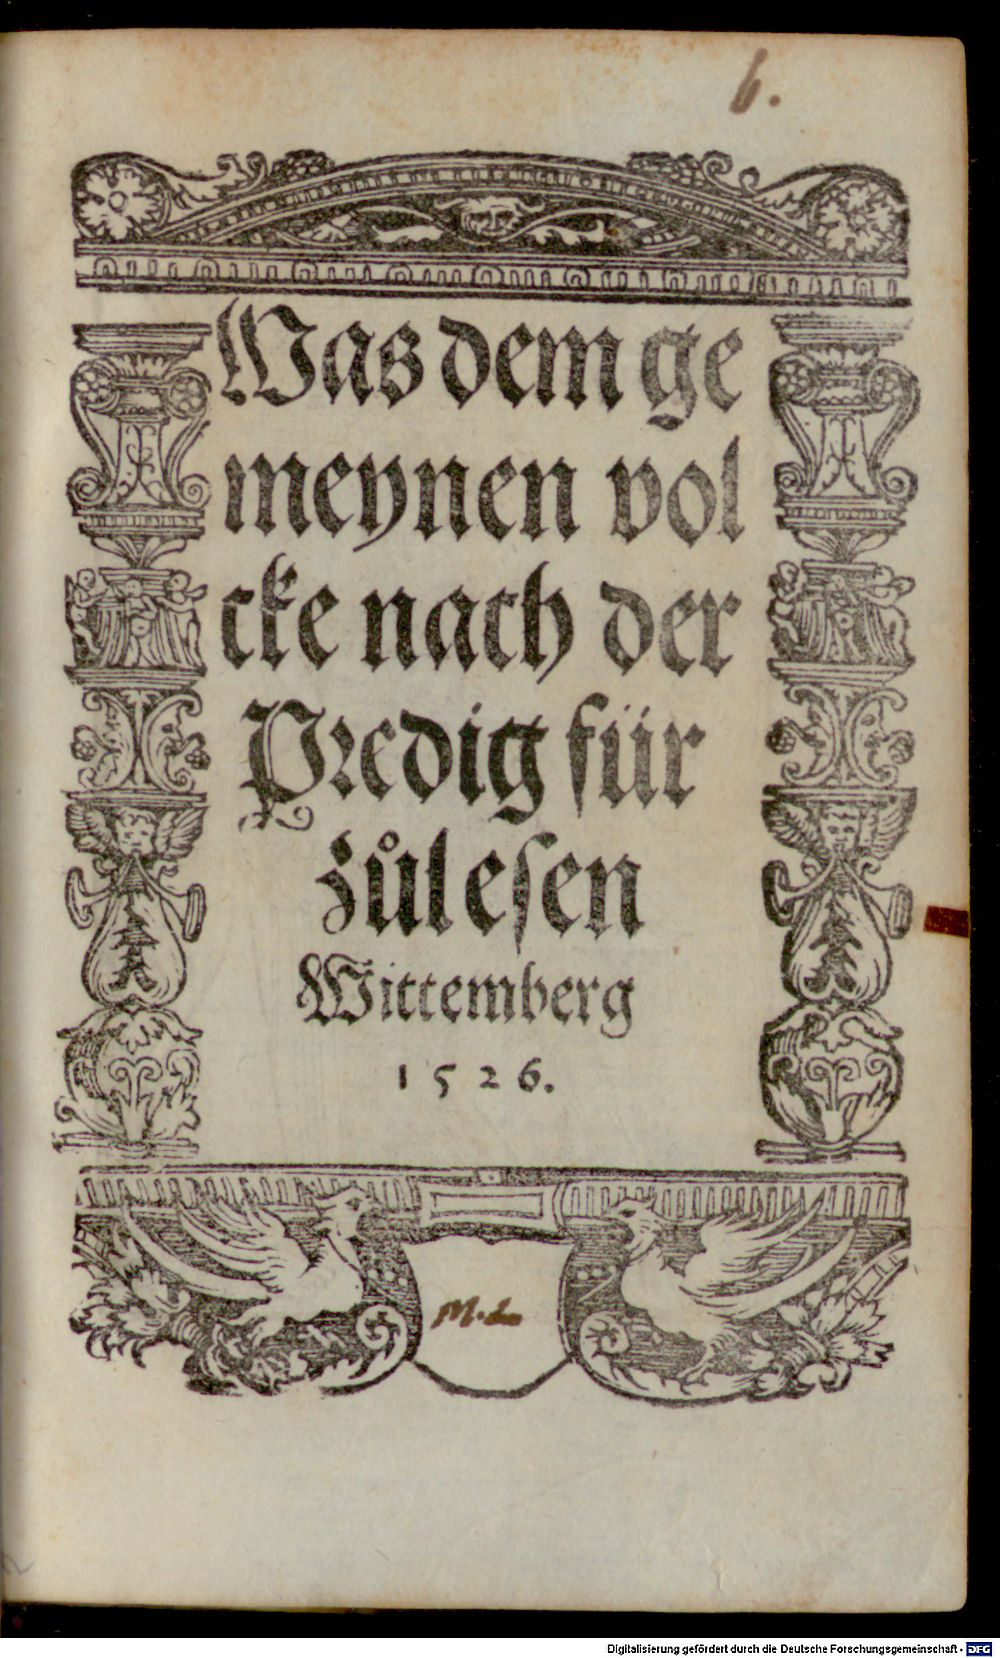 6.
Was dem ge
meynen vol
cke nach der
Predig für
zůlesen
Wittemberg
1526.
Digitalisierung gefördert durch die Deutsche Forschungsgemeinschaft - DFG